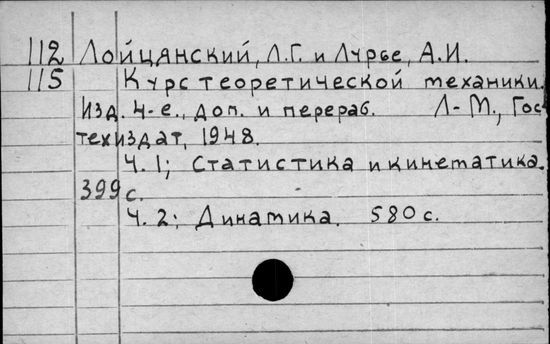 112 Лойцянский, Л.Г. и Лурье, А.И.
115 Курс теоретической механики.
Изд. 4-е., доп. и перераб. Л-М., Гос-
техиздат, 1948.
Ч. 1; Статистика и кинематика.
399 с.
Ч. 2; Динамика. 580 с.